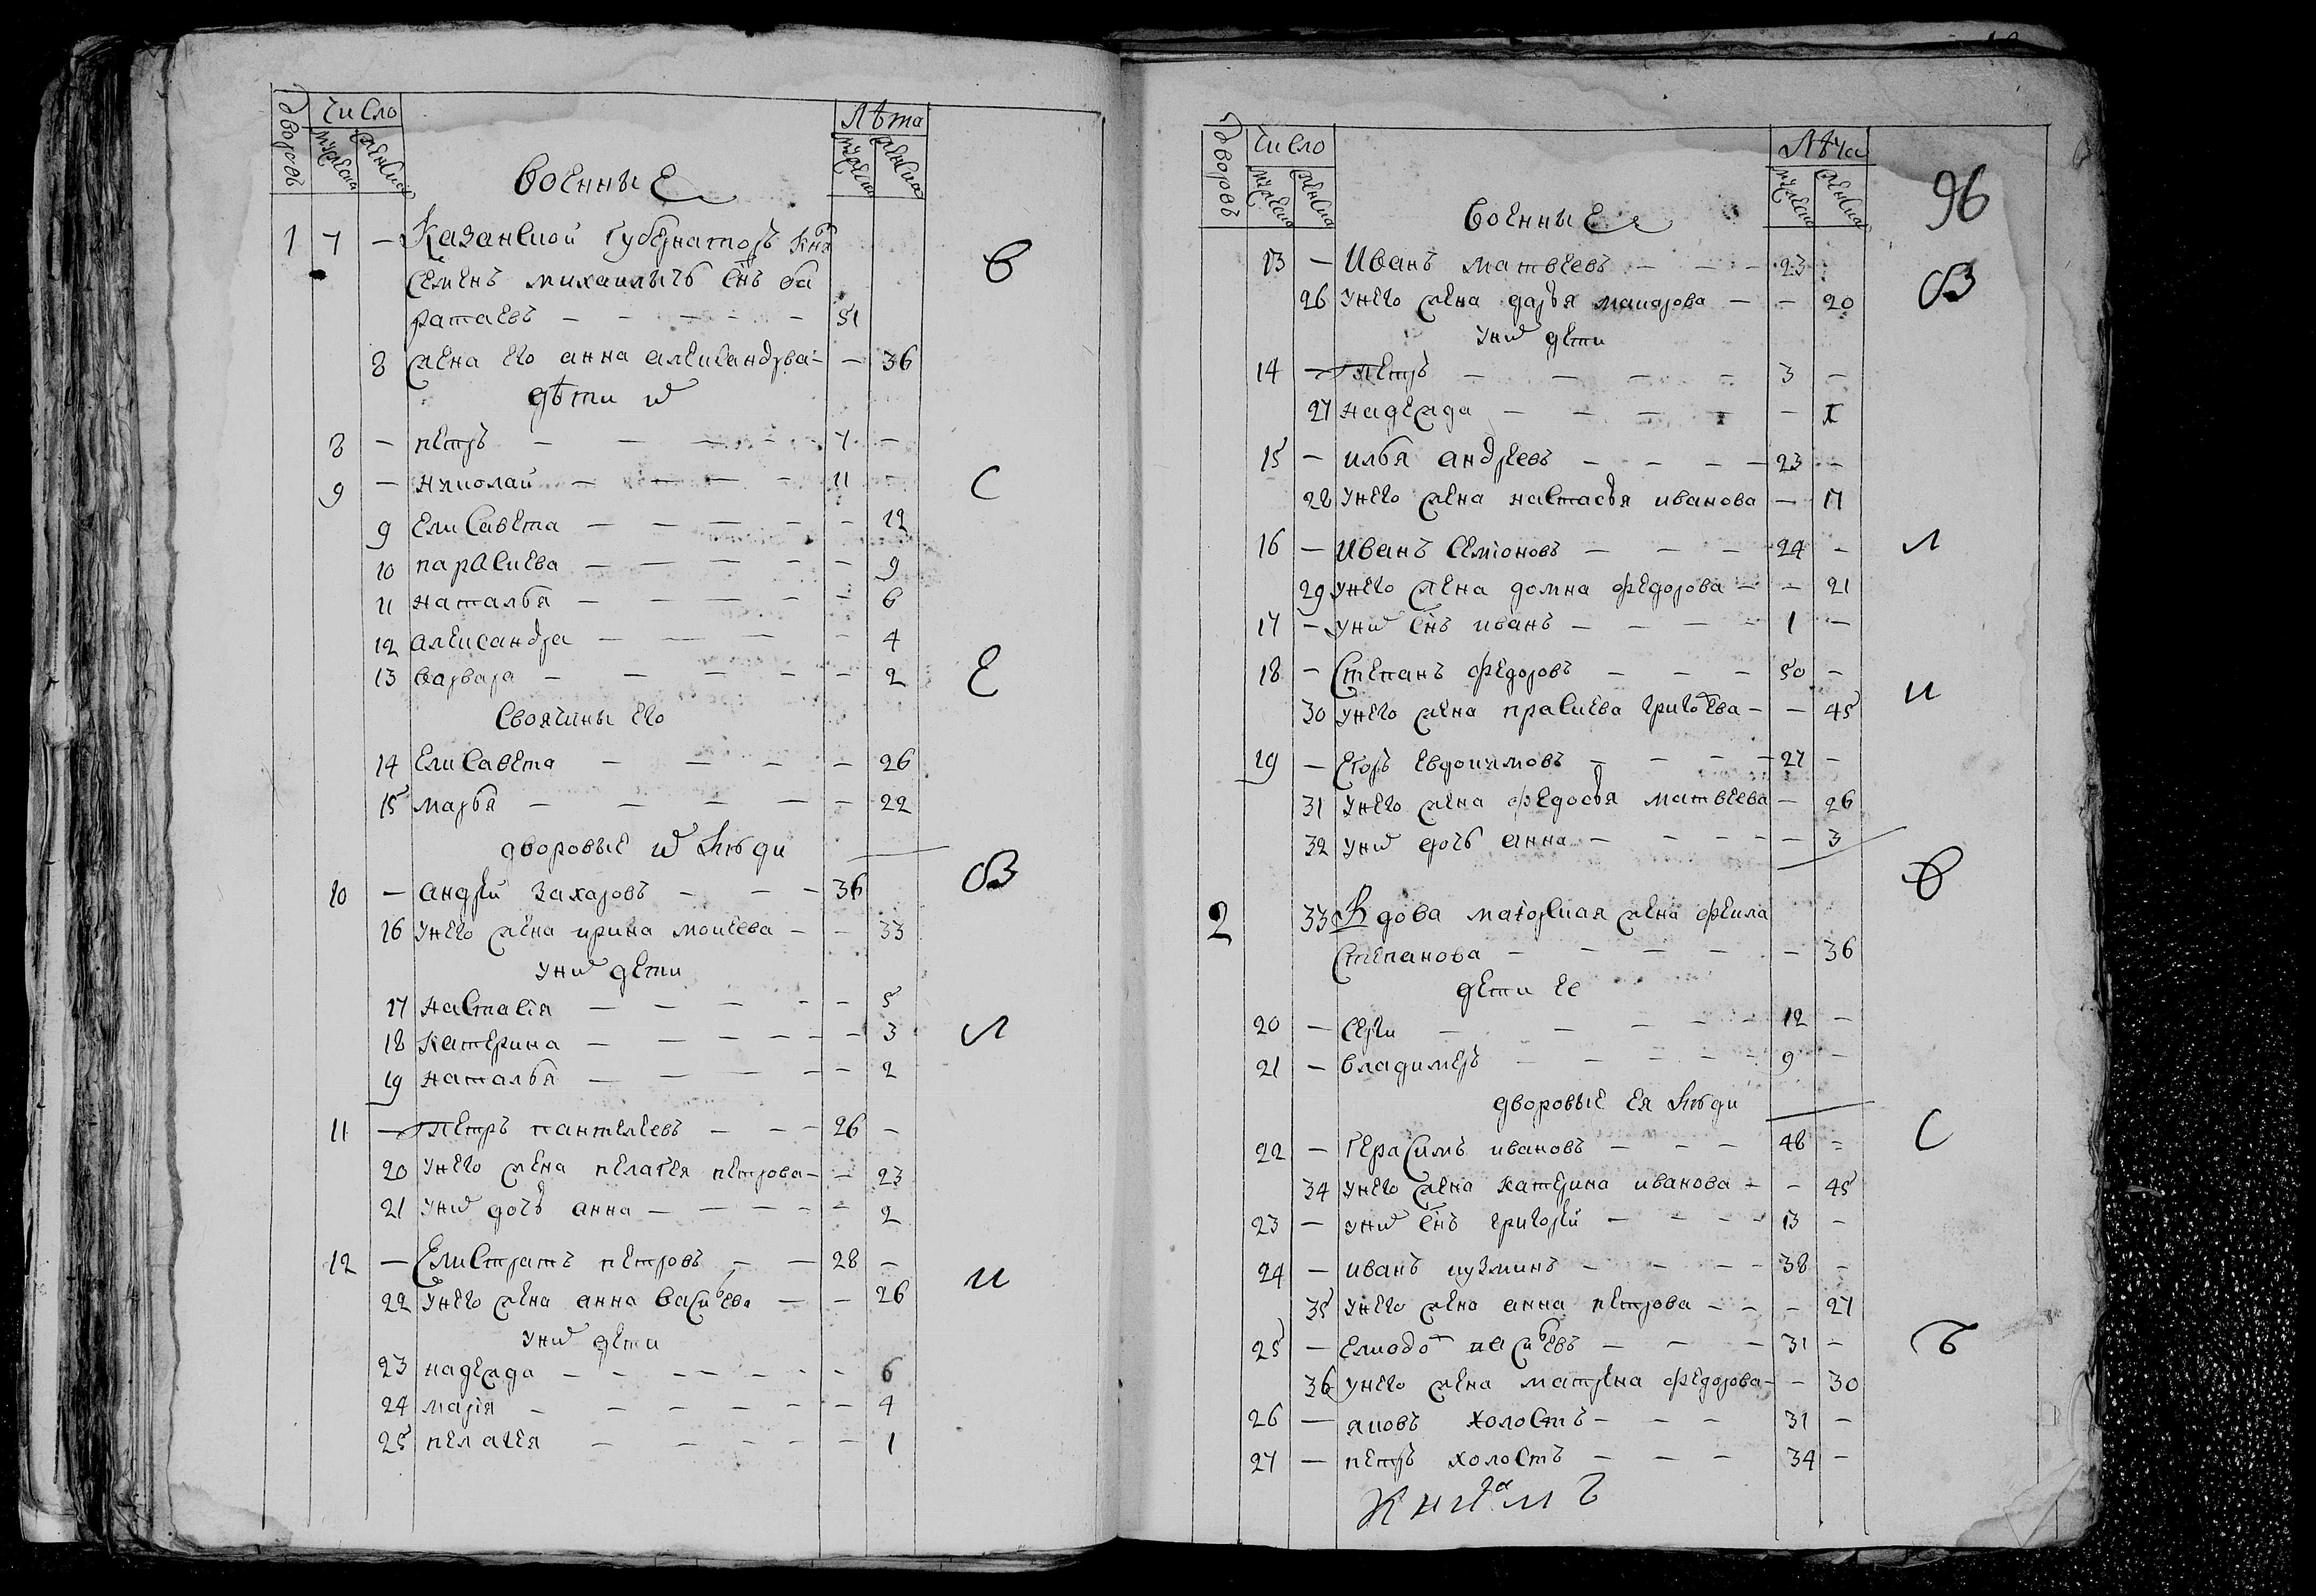 дворовъ
Число
мужеска
женска
военные
Лѣта
мужеска
женска
1 7 — Казанской губернаторъ кнзь
семенъ михаилычь снъ ба
ратаевъ — — — — — 51
8 жена его анна александрва — — 36
дѣти ѿ
8 — петръ — — — — 7 —
9 — николай — — — — 11 —
9 елисавета — — — — — 12
10 парасκева — — — — — 9
11 наталья — — — — — 6
12 александра — — — — 4
13 варвара — — — — — 2
своячины его
14 елисавета — — — — 26
15 марья — — — — — 22
дворовые ѿ люди
10 — андрей захаровъ — — — 36
16 унего жена ирина моисева — — 33
униѿ дети
17 настасiя — — — — — 5
18 катерина — — — — — — 3
19 наталья — — — — — 2
11 — петръ пантелеевъ — — — 26 —
20 унего жена пелагея петрова — — 23
21 униѿ дочь анна — — — — — 2
12 — елистратъ петровъ — — 28 —
22 унего жена анна васиьева — — 26
униѿ дети
23 надежда — — — — — — 6
24 марiя — — — — — — 4
25 пелагея — — — — — 1
в
с
е
в
л
и
дворовъ
Число
мужеска
женска
военные
Лѣта
мужеска
женска
96
13 — Иванъ матвеевъ — — — 23
26 унего жена дарья маиорова — — 20
униѿ дети
14 — петръ — — — — 3 —
27 надежда — — — — —
15 — илья андреевъ — — — — 23 —
28 унего жена настасья иванова — 17
16 — Иванъ семiоновъ — — — 24 —
29 унего жена домна федорова — — 21
17 — униѿ снъ иванъ — — — — 1 —
18 — степанъ федоровъ — — — 50 —
30 унего жена прасκева григоьева — — 45
19 — егоръ евдокимовъ — — — — 27 —
31 унего жена федосья матвеева — 26
32 униѿ дочь анна — — — — — 3
2 33 Вдова маiорская жена фекла
степанова — — — — — 36
дети ее
20 — сергеи — — — — — 12 —
21 — владимеръ — — — — — 9 —
дворовые ея люди
22 — герасимъ ивановъ — — — 48 —
34 унего жена катерина иванова — — 45
23 — униѿ снъ григорей — — — — 13 —
24 — иванъ кузминъ — — — — 38 —
35 унего жена анна петрова — — — 27
25 — — — — 31 —
36 унего жена матрена федорова — — 30
26 — яковъ холостъ — — — 31 —
27 — петръ холостъ — — — 34 —
в
л
и
в
с
ъ